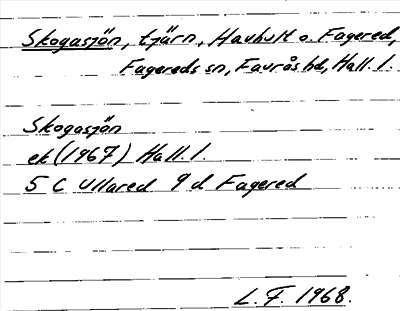 Skogasjön, tjärn, Havhult o. Fagered,
Fagereds sn, Faurås hd, Hall. l.
Skogasjön
ek (1967) Hall. l.
5 C Ullared 9 d Fagered
L. F. 1968.